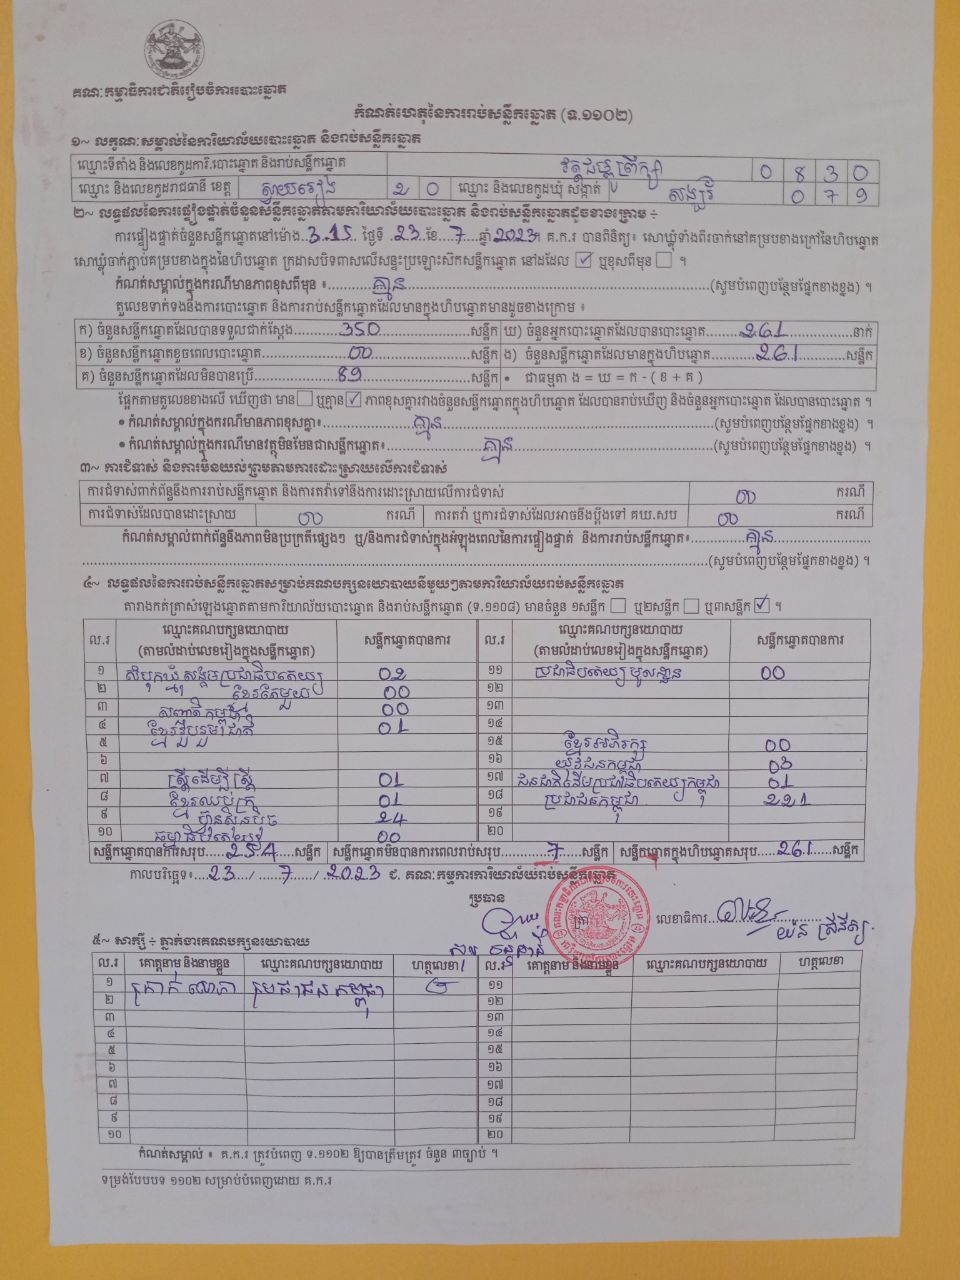 គណៈកម្មាធិការជាតិរៀបចំការបោះឆ្នោត
កំណត់ហេតុនៃការរាប់សន្លឹកឆ្នោត (ទ.១១០២)
១~ លក្ខណៈសម្គាល់នៃការិយាល័យបោះឆ្នោត និងរាប់សន្លឹកឆ្នោត
ឈ្មោះទីតាំង និងលេខកូដការិ.បោះឆ្នោត និងរាប់សន្លឹកឆ្នោត 0 8 3 0
ឈ្មោះ និងលេខកូដរាជធានី ខេត្ត ស្វាយរៀង 2 0 ឈ្មោះ និងលេខកូដឃុំ សង្កាត់ 0 7 9
២~ លទ្ធផលនៃការផ្ទៀងផ្ទាត់ចំនួនសន្លឹកឆ្នោតតាមការិយាល័យបោះឆ្នោត និងរាប់សន្លឹកឆ្នោតដូចខាងក្រោម ÷
ការផ្ទៀងផ្ទាត់ចំនួនសន្លឹកឆ្នោតនៅម៉ោង 3.15 ថ្ងៃទី 23 ខែ 7 ឆ្នាំ 2023។ គ.ក.រ បានពិនិត្យ៖ សោឃ្លុំទាំងពីរចាក់នៅគម្របខាងក្រៅនៃហិបឆ្នោត
សោឃ្លុំចាក់ភ្ជាប់គម្របខាងក្នុងនៃហិបឆ្នោត ក្រដាសបិទពាសលើសន្ទះប្រឡោះសិកសន្លឹកឆ្នោត នៅដដែល ✓ ឬខុសពីមុន ។
កំណត់សម្គាល់ក្នុងករណីមានភាពខុសពីមុន ៖ គ្មាន (សូមបំពេញបន្ថែមផ្នែកខាងខ្នង) ។
តួលេខទាក់ទងនឹងការបោះឆ្នោត និងការរាប់សន្លឹកឆ្នោតដែលមានក្នុងហិបឆ្នោតមានដូចខាងក្រោម ៖
ក) ចំនួនសន្លឹកឆ្នោតដែលបានទទួលជាក់ស្តែង 350 សន្លឹក ឃ) ចំនួនអ្នកបោះឆ្នោតដែលបានបោះឆ្នោត 261 នាក់
ខ) ចំនួនសន្លឹកឆ្នោតខូចពេលបោះឆ្នោត 00 សន្លឹក ង) ចំនួនសន្លឹកឆ្នោតដែលមានក្នុងហិបឆ្នោត 261 សន្លឹក
គ) ចំនួនសន្លឹកឆ្នោតដែលមិនបានប្រើ 89 សន្លឹក • ជាធម្មតា ង = ឃ = ក - ( ខ + គ )
ផ្អែកតាមតួលេខខាងលើ ឃើញថា មាន ឬគ្មាន ✓ ភាពខុសគ្នារវាងចំនួនសន្លឹកឆ្នោតក្នុងហិបឆ្នោត ដែលបានរាប់ឃើញ និងចំនួនអ្នកបោះឆ្នោត ដែលបានបោះឆ្នោត ។
• កំណត់សម្គាល់ក្នុងករណីមានភាពខុសគ្នា៖ គ្មាន (សូមបំពេញបន្ថែមផ្នែកខាងខ្នង) ។
• កំណត់សម្គាល់ក្នុងករណីមានវត្ថុមិនមែនជាសន្លឹកឆ្នោត៖ គ្មាន (សូមបំពេញបន្ថែមផ្នែកខាងខ្នង) ។
៣~ ការជំទាស់ និងការមិនយល់ព្រមតាមការដោះស្រាយលើការជំទាស់
ការជំទាស់ពាក់ព័ន្ធនឹងការរាប់សន្លឹកឆ្នោត និងការតវ៉ាទៅនឹងការដោះស្រាយលើការជំទាស់ 00 ករណី
ការជំទាស់ដែលបានដោះស្រាយ 00 ករណី ការតវ៉ា ឬការជំទាស់ដែលអាចនឹងប្តឹងទៅ គឃ.សប 00 ករណី
កំណត់សម្គាល់ពាក់ព័ន្ធនឹងភាពមិនប្រក្រតីផ្សេងៗ ឬ/និងការជំទាស់ក្នុងអំឡុងពេលនៃការផ្ទៀងផ្ទាត់ និងការរាប់សន្លឹកឆ្នោត៖ គ្មាន
(សូមបំពេញបន្ថែមផ្នែកខាងខ្នង) ។
៤~ លទ្ធផលនៃការរាប់សន្លឹកឆ្នោតសម្រាប់គណបក្សនយោបាយនីមួយៗតាមការិយាល័យរាប់សន្លឹកឆ្នោត
តារាងកត់ត្រាសំឡេងឆ្នោតតាមការិយាល័យបោះឆ្នោត និងរាប់សន្លឹកឆ្នោត (ទ.១១០៨) មានចំនួន ១សន្លឹក ឬ២សន្លឹក ឬ៣សន្លឹក ✓ ។
ល.រ ឈ្មោះគណបក្សនយោបាយ (តាមលំដាប់លេខរៀងក្នុងសន្លឹកឆ្នោត) សន្លឹកឆ្នោតបានការ ល.រ ឈ្មោះគណបក្សនយោបាយ (តាមលំដាប់លេខរៀងក្នុងសន្លឹកឆ្នោត) សន្លឹកឆ្នោតបានការ
១ សំបុកឃ្មុំសង្គមប្រជាធិបតេយ្យ 02 ១១ 00
២ ខ្មែរតែមួយ 00 ១២
៣ សញ្ជាតិកម្ពុជា 00 ១៣
៤ ខ្មែររួបរួមជាតិ 01 ១៤
៥ ១៥ ខ្មែរអភិរក្ស 00
៦ ១៦ យុវជនកម្ពុជា 03
៧ ស្ត្រីដើម្បីស្ត្រី 01 ១៧ ជនជាតិដើមប្រជាធិបតេយ្យកម្ពុជា 01
៨ ខ្មែរឈប់ក្រ 01 ១៨ ប្រជាជនកម្ពុជា 221
៩ ហ្វ៊ុនស៊ិនប៉ិច 24 ១៩
១០ ធម្មាធិបតេយ្យ 00 ២០
សន្លឹកឆ្នោតបានការសរុប 254 សន្លឹក សន្លឹកឆ្នោតមិនបានការពេលរាប់សរុប 7 សន្លឹក សន្លឹកឆ្នោតក្នុងហិបឆ្នោតសរុប 261 សន្លឹក
កាលបរិច្ឆេទ៖ 23 / 7 / 2023 ជ. គណៈកម្មការការិយាល័យរាប់សន្លឹកឆ្នោត
ប្រធាន
ត្រា លេខាធិការ
៥~ សាក្សី ÷ ភ្នាក់ងារគណបក្សនយោបាយ
ល.រ គោត្តនាម និងនាមខ្លួន ឈ្មោះគណបក្សនយោបាយ ហត្ថលេខា ល.រ គោត្តនាម និងនាមខ្លួន ឈ្មោះគណបក្សនយោបាយ ហត្ថលេខា
១ ប្រជាជនកម្ពុជា ១១
២ ១២
៣ ១៣
៤ ១៤
៥ ១៥
៦ ១៦
៧ ១៧
៨ ១៨
៩ ១៩
១០ ២០
កំណត់សម្គាល់ ៖ គ.ក.រ ត្រូវបំពេញ ទ.១១០២ ឱ្យបានត្រឹមត្រូវ ចំនួន ៣ច្បាប់ ។
ទម្រង់បែបបទ ១១០២ សម្រាប់បំពេញដោយ គ.ក.រ